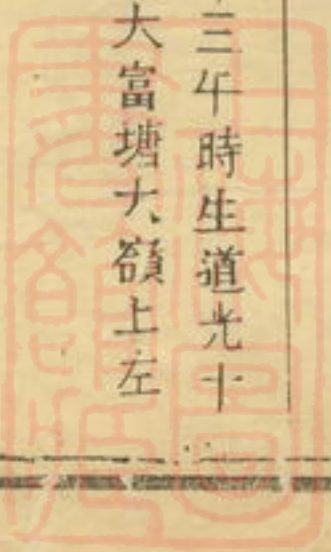 三午時生道光十
大富塘大嶺上左